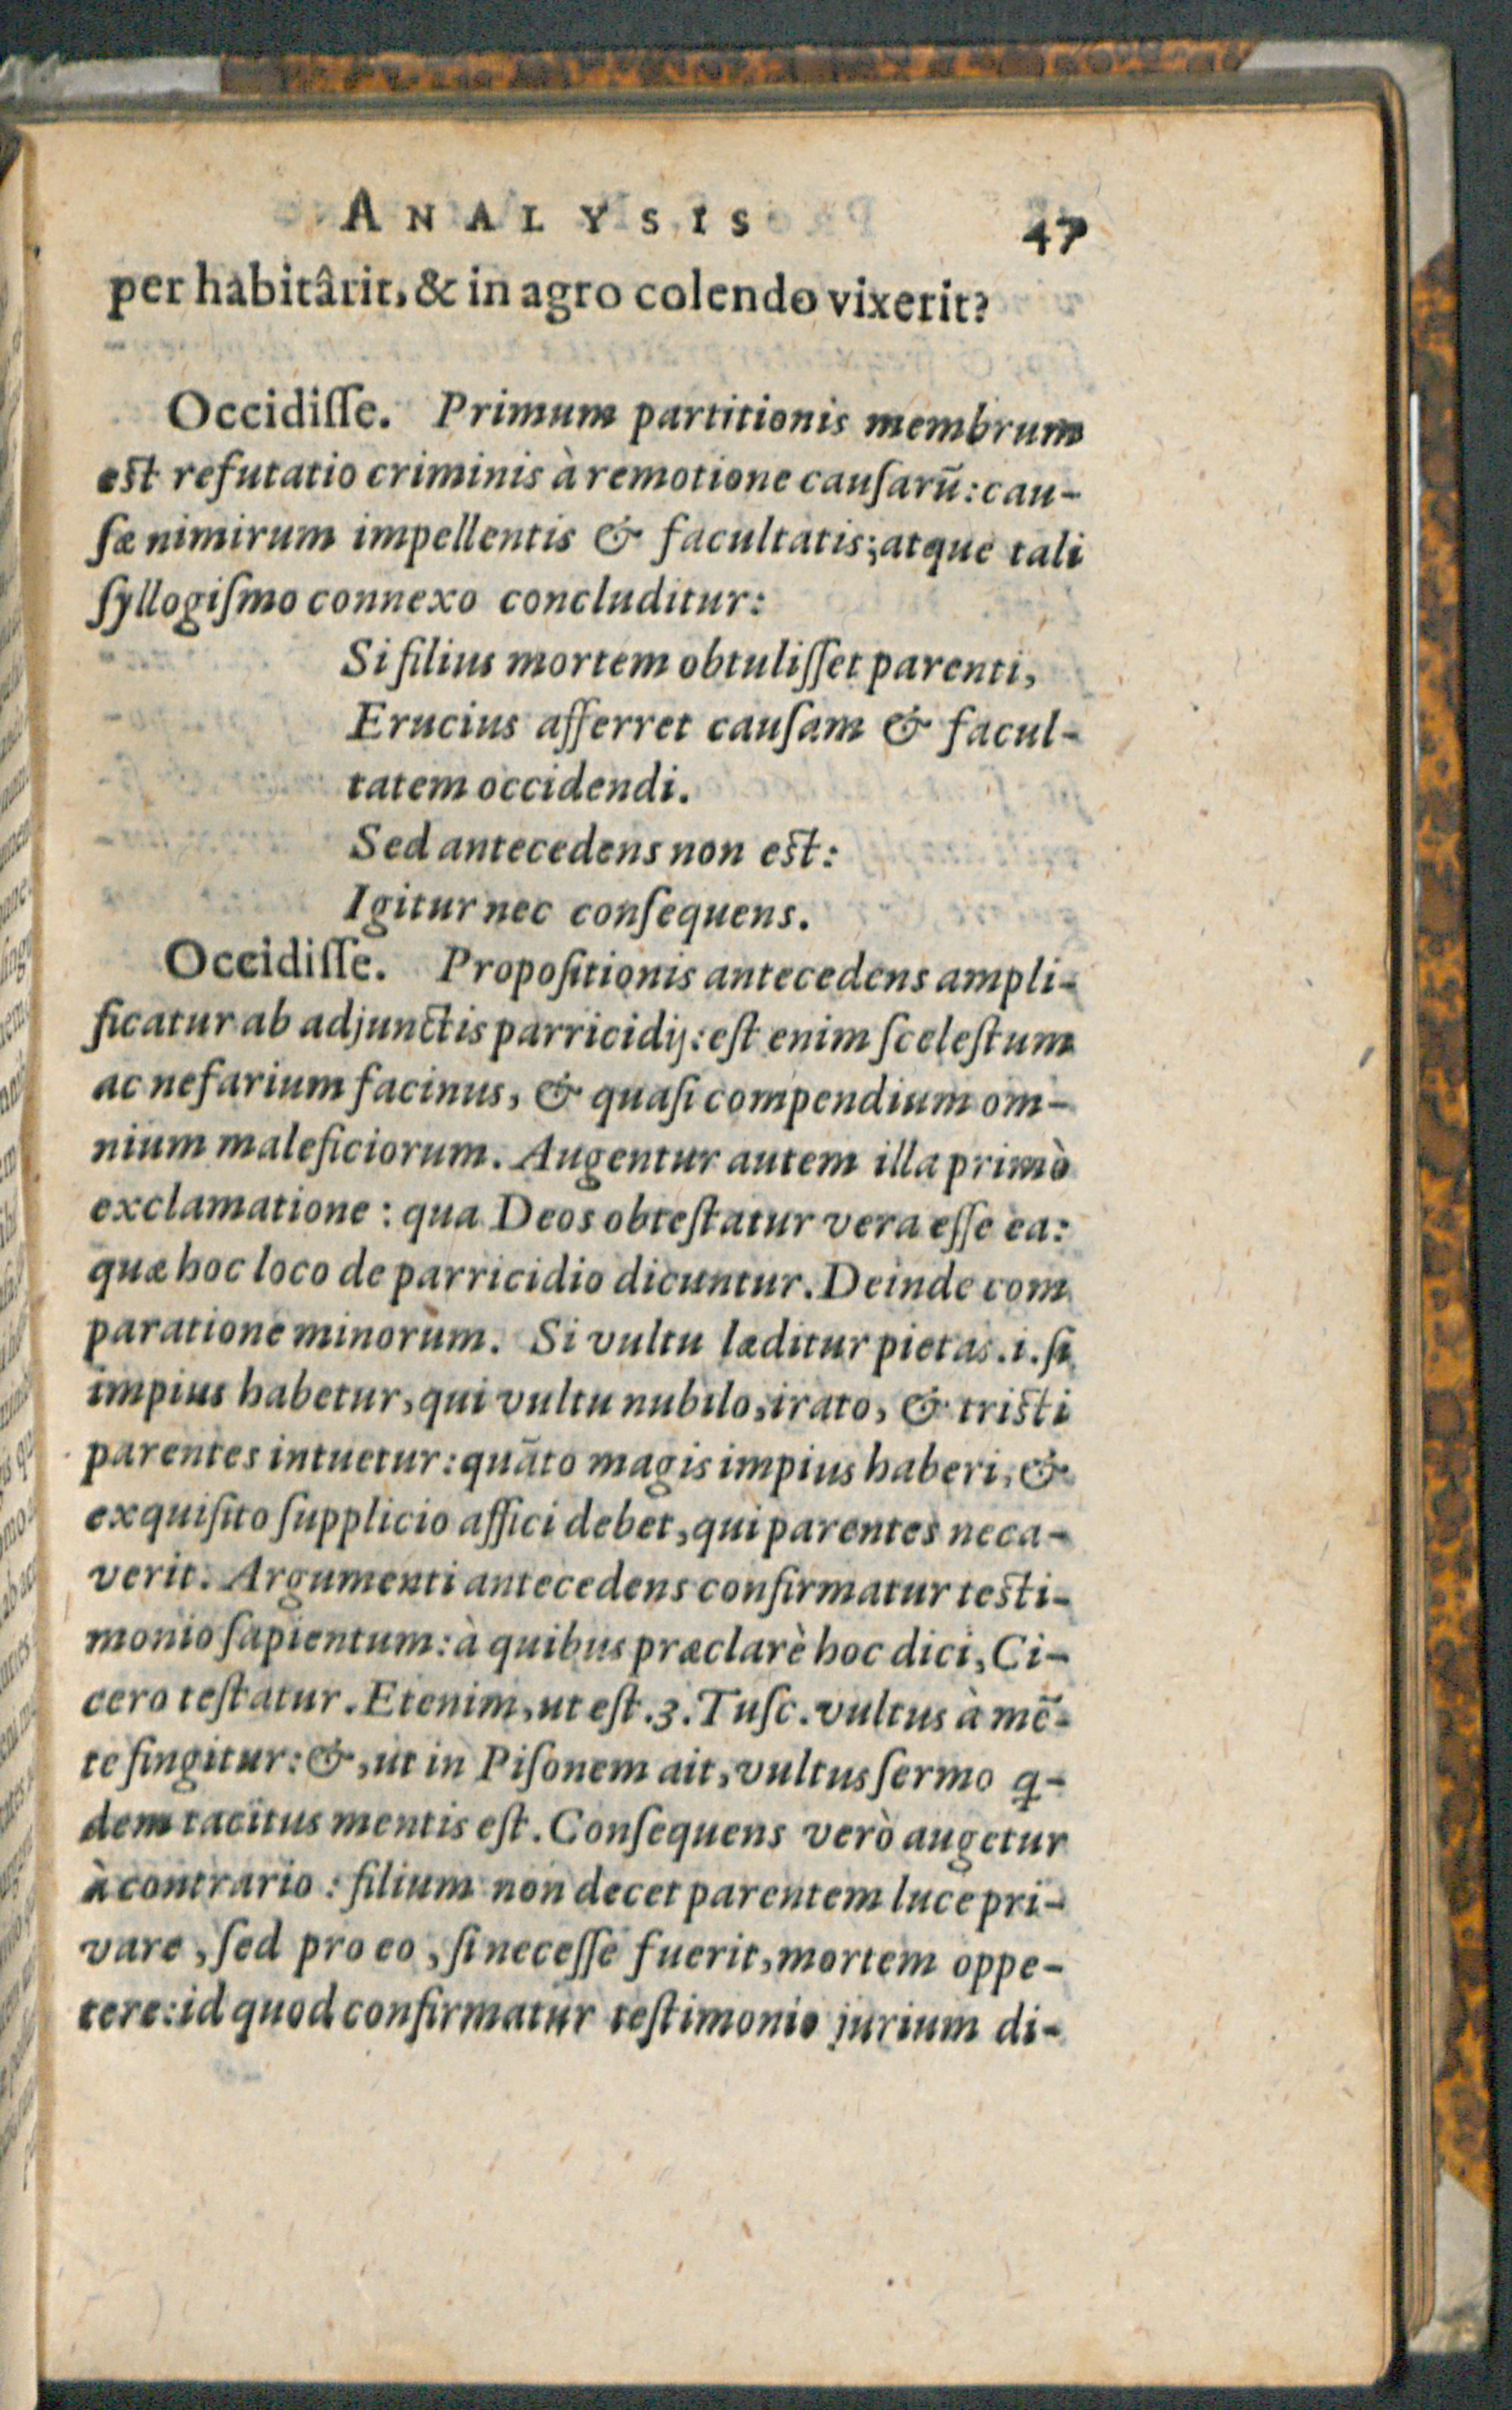 ANALYSIS 47
per habitârit, & in agro colendo vixerit?
Occidiſſe. Primum partitionis membrum
est refutatio criminis à remotione cauſarũ: cau-
ſæ nimirum impellentis & facultatis; atque tali
ſyllogiſmo connexo concluditur:
Si filius mortem obtuliſſet parenti,
Erucius afferret cauſam & facul-
tatem occidendi.
Sed antecedens non est:
Igitur nec conſequens.
Occidiſſe. Propoſitionis antecedens ampli-
ficatur ab adjunctis parricidij: eſt enim ſceleſtum
ac nefarium facinus, & quaſi compendium om-
nium maleficiorum. Augentur autem illa primò
exclamatione: qua Deos obteſtatur vera eſſe ea:
quæ hoc loco de parricidio dicuntur. Deinde com
paratione minorum. Si vultu læditur pietas .i. ſi
impius habetur, qui vultu nubilo, irato, & tristi
parentes intuetur: quãto magis impius haberi, &
exquiſito ſupplicio affici debet, qui parentes neca-
verit. Argumenti antecedens confirmatur testi-
monio ſapientum: à quibus præclarè hoc dici, Ci-
cero teſtatur. Etenim, ut eſt .3. Tuſc. vultus à mẽ-
te fingitur: &, ut in Piſonem ait, vultus ſermo q-
dem tacitus mentis eſt. Conſequens verò augetur
à contrario: filium non decet parentem luce pri-
vare, ſed pro eo, ſi neceſſe fuerit, mortem oppe-
tere: id quod confirmatur teſtimonio jurium di-